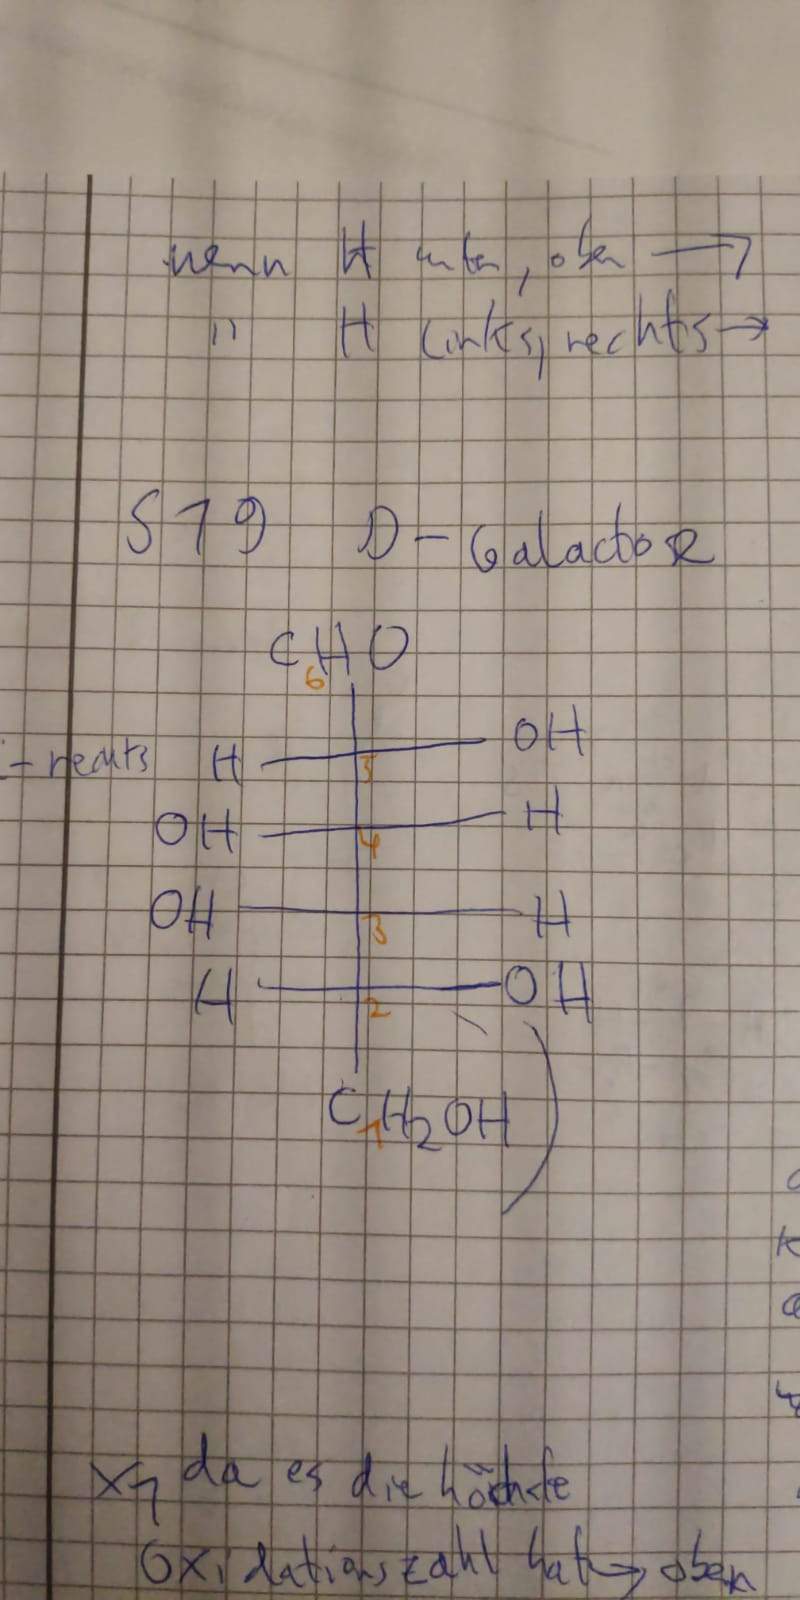 wenn H unten, oben →
" H links, rechts →
S 19 D-Galactose
CHO
6
- rechts H 5 OH
OH 4 H
OH 3 H
H 2 OH
CH2OH
1
da es die höchste
Oxidationszahl hat → oben